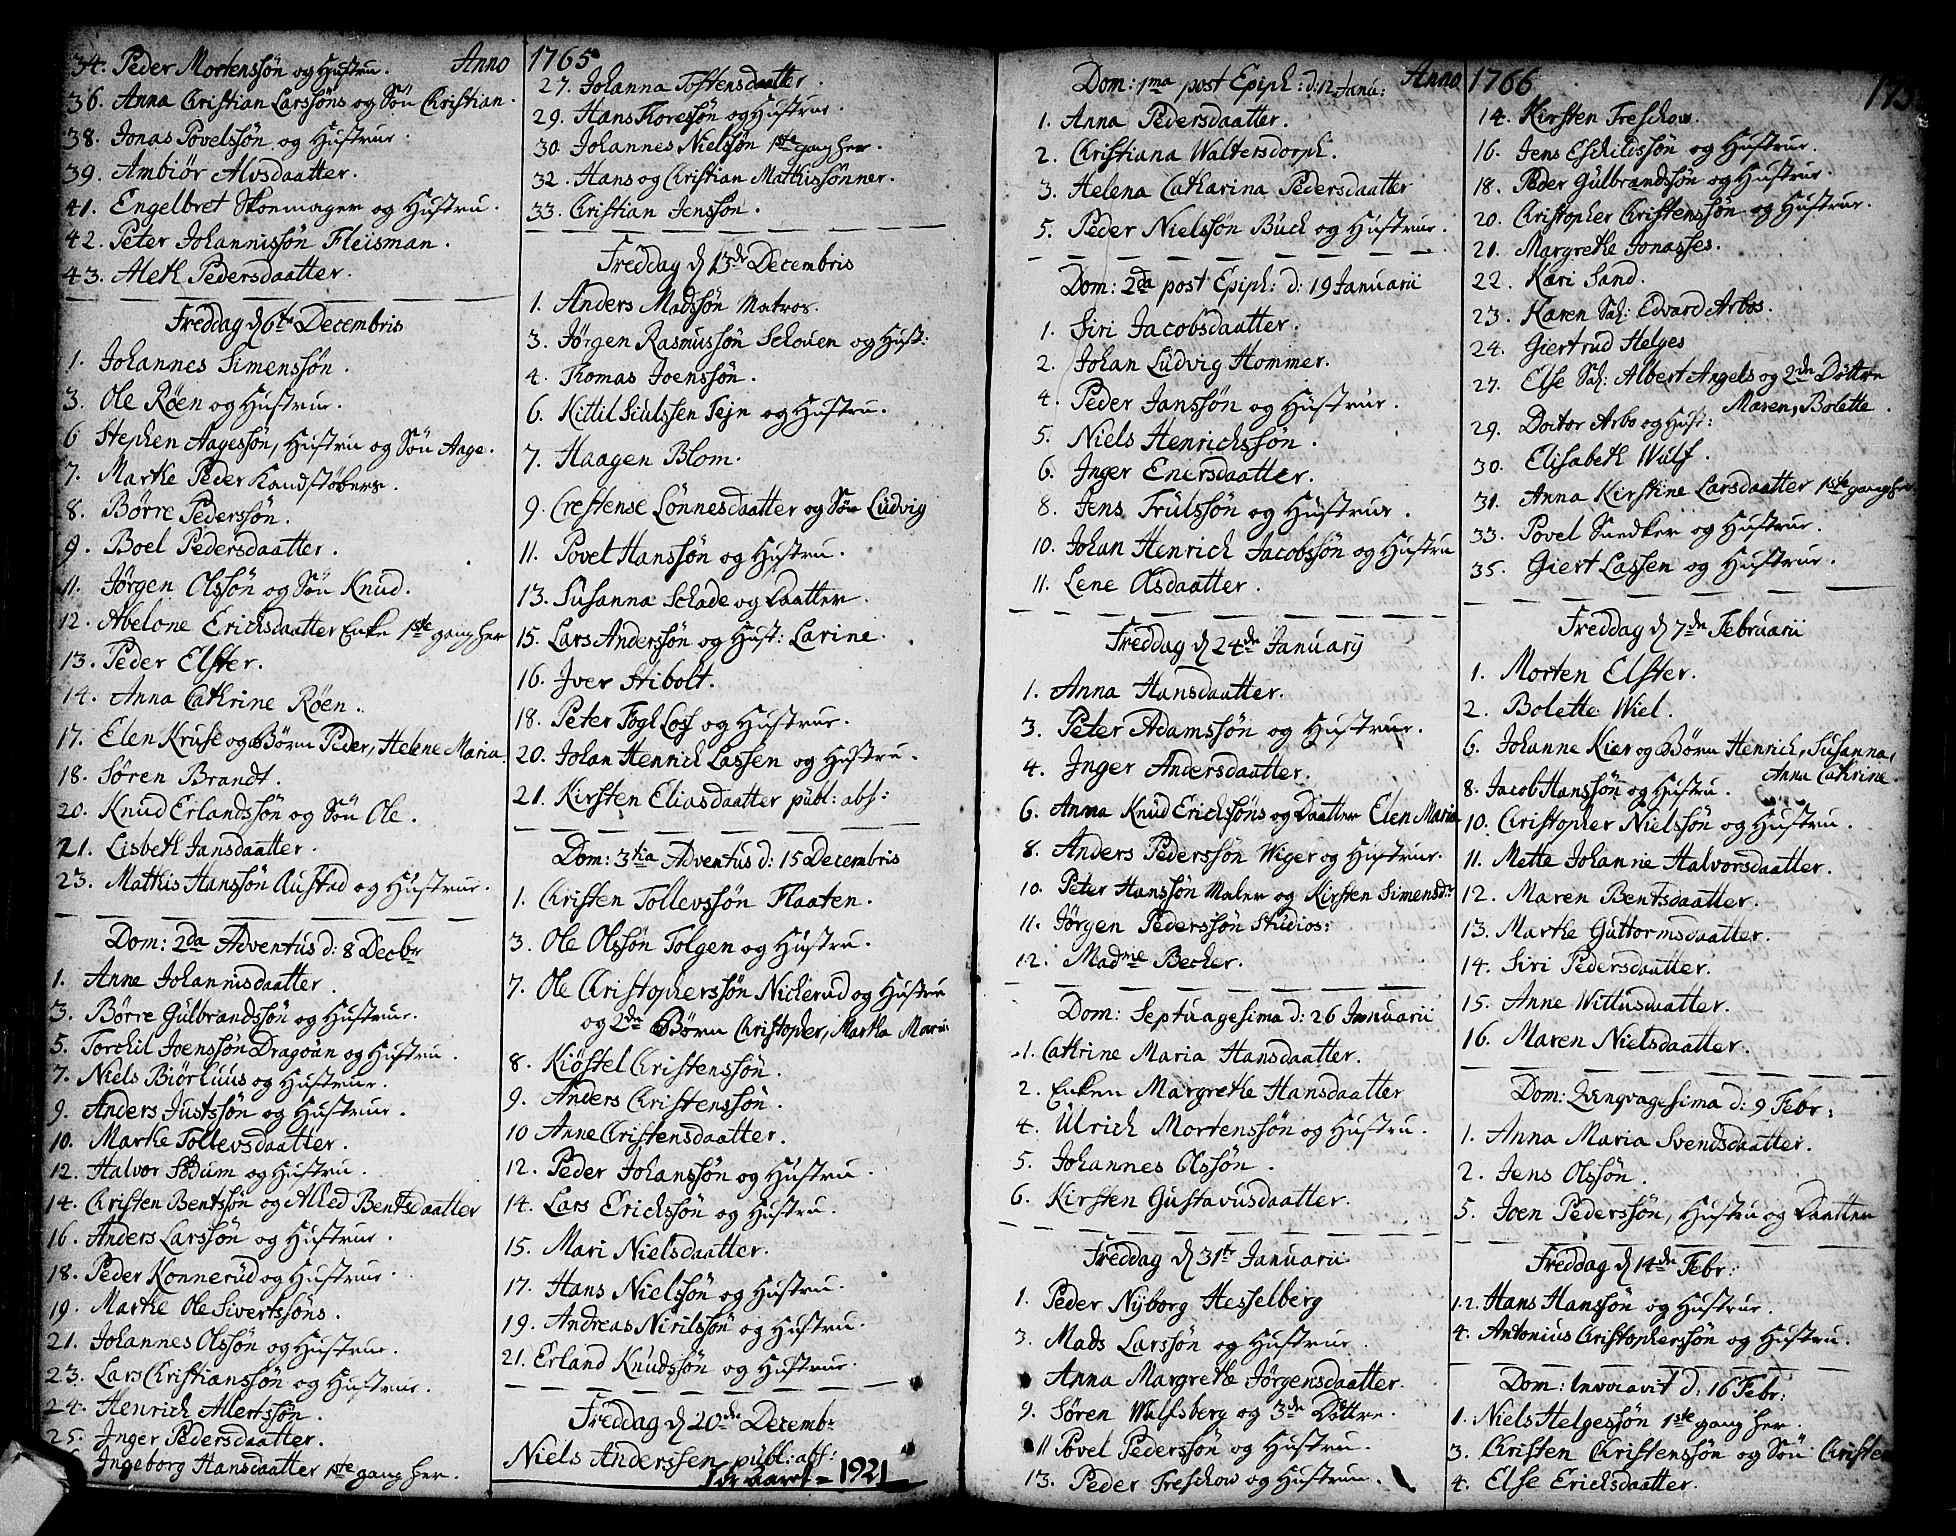 Anno 1765
34. Peder Mortenssön og Hustru.
36. Anna Christian Larssöns og Sön Christian.
38. Jonas Povelssön og Hustrue.
39. Ambiör Alvsdaatter.
41. Engelbret Skoemager og Hustru.
42. Peter Johannissön Fleisman.
43. Aleth Pedersdaatter.
Freddag d 6te Decembris
1. Johannes Simenssön.
3. Ole Röen og Hustrue.
6 Stephen Aagessön, Hustru og Sön Aage.
7. Marthe Peder Kandstöbers.
8. Börre Pederssön.
9. Boel Pedersdaatter.
11. Jörgen Olssön og Sön Knud.
12. Abelone Erichsdaatter Enke 1ste gang her
13. Peder Elster.
14. Anna Cathrine Röen.
17. Elen Kruse og Börn Peder, Helene Maria
18. Sören Brandt.
20. Knud Erlandssön og Sön Ole.
21. Lisbeth Jansdaatter.
23. Mathis Hanssön Austad og Hustrue.
Dom: 2da Adventus d: 8 Decbr
1. Anne Johannisdaatter.
3. Börre Gulbrandssön og Hustrue.
5. Torchil Joenssön Dragoun og Hustru.
7. Niels Biörluus og Hustrue.
9. Anders Justssön og Hustrue.
10. Marthe Tollevsdaatter.
12. Halvor Sodum og Hustru.
14. Christen Bentssön og Alled Bentsdaatter
16. Anders Larssön og Hustrue.
18. Peder Konnerud og Hustrue.
19. Marthe Ole Sivertssöns.
21. Johannes Olssön og Hustrue.
23. Lars Christianssön og Hustrue.
24. Henrich Allertssön.
25. Inger Pedersdaatter.
Ingeborg Hansdaatter 1ste gang her.
27. Johanna Tostensdaatter.
29. Hans Thoressön og Hustrue.
30. Johannes Nielssön 1ste gang her.
32. Hans og Christian Mathissönner.
33. Christian Jenssön.
Freddag d 13de Decembris
1. Anders Madssön Matros.
3. Jörgen Rasmussön Schouen og Hust:
4. Thomas Joenssön.
6. Kittil Siulssen Tejn og Hustru.
7. Haagen Blom.
9. Crestense Lönnesdaatter og Sön Ludvig
11. Povel Hanssön og Hustru.
13. Susanna Schade og Daatter.
15. Lars Anderssön og Hust: Larine.
16. Iver Stibolt.
18. Peter Fogl Losf og Hustrue.
20. Johan Henrich Lassen og Hustru.
21. Kirsten Eliasdaatter publ: abs:
Dom: 3tia Adventus d: 15 Decembris
1. Christen Tollevssön Flaaten.
3. Ole Olssön Tolgen og Hustru.
7. Ole Christopherssön Nickerud og Hustru
og 2de Börn Christopher, Martha Maria
8. Kiöstel Christenssön.
9. Anders Christenssön.
10 Anne Christensdaatter.
12. Peder Johanssön og Hustru.
14. Lars Erichssön og Hustru.
15. Mari Nielsdaatter.
17. Hans Nielssön og Hustru.
19. Andreas Nirilssön og Hustru.
21. Erland Knudssön og Hustrue.
Freddag d 20de Decembr
Niels Anderssen publ: abs:
1921
Anno 1766
Dom: 1ma post Epiph: d: 12 Janu:
1. Anna Pedersdaatter.
2. Christiana Waltersdorph.
3. Helena Catharina Pedersdaatter
5. Peder Nielssön Buch og Hustrue.
Dom: 2da post Epiph: d: 19 Januarii
1. Siri Jacobsdaatter.
2. Johan Ludvig Hommer.
4. Peder Janssön og Hustrue.
5. Niels Henrichssön.
6. Inger Enersdaatter.
8. Jens Trulssön og Hustrue.
10. Johan Henrich Jacobssön og Hustru
11. Lene Olsdaatter.
Freddag d 24de Januarij
1. Anna Hansdaatter.
3. Peter Adamssön og Hustrue.
4. Inger Andersdaatter.
6. Anna Knud Erichssöns og Daatter Elen Maria
8. Anders Pederssön Wiger og Hustrue.
10. Peter Hanssön Maler og Kirsten Simensdr
11. Jörgen Pederssön Studios:
12. Madme Becher.
Dom: Septuagesima d: 26 Januarii
1. Cathrine Maria Hansdaatter.
2. Enken Margrethe Hansdaatter
4. Ulrich Mortenssön og Hustru.
5. Johannes Olssön.
6. Kirsten Gustavusdaatter.
Freddag d 31te Januarii
1. Peder Nyborg Hesselberg
3. Mads Larssön og Hustrue.
Anna Margrethe Jörgensdaatter.
9. Sören Wulfsberg og 3de Döttre.
11 Povel Pederssön og Hustru.
13. Peder Treschow og Hustrue.
14. Kirsten Treschow.
16. Jens Eschildssön og Hustrue.
18. Peder Gulbrandssön og Hustrue.
20. Christopher Christenssön og Hustrue.
21. Margrethe Jonasses.
22. Kari Sand.
23. Karen Sal: Edvard Arbos.
24. Giertrud Helges
27. Else Sal: Albert Angels og 2de Döttre
Maren, Bolette.
29. Doctor Arbo og Hust:
30. Elisabeth Wulf.
31. Anna Kirstine Larsdaatter 1ste gang her
33. Povel Snedker og Hustrue.
35. Giert Lassen og Hustrue.
Freddag d 7de Februarii
1. Morten Elster.
2. Bolette Wiel.
6. Johanne Kier og Börn Henrich, Susanna,
Anna Cathrine.
8. Jacob Hanssön og Hustru.
10. Christopher Nielssön og Hustru.
11. Mette Johanne Halvorsdaatter.
12. Maren Bentsdaatter.
13. Marthe Guttormsdaatter.
14. Siri Pedersdaatter.
15. Anne Wittusdaatter.
16. Maren Nielsdaatter.
Dom: Qvinqvagesima d: 9 Febr:
1. Anna Maria Svendsdaatter.
2. Jens Olssön.
5. Joen Pederssön, Hustru og Daatter
Freddag d 14de Febr:
1.2. Hans Hanssön og Hustrue.
4. Antonius Christopherssön og Hustru.
Dom: Invocavit d: 16 Febr:
1. Niels Helgessön 1ste gang her.
3. Christen Christenssön og Sön Christen
4. Else Erichsdaatter.